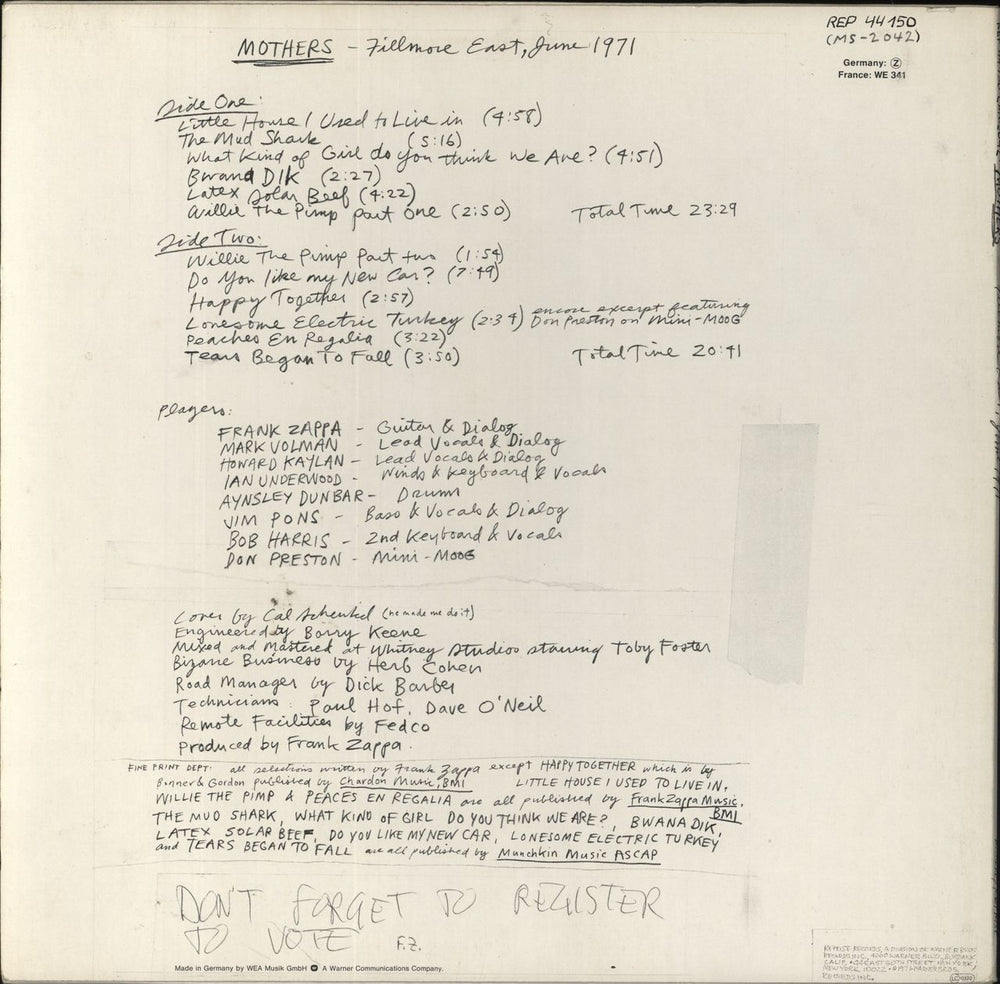 REP 44 150
(MS-2042)
Germany: Ⓩ
France: WE 341
MOTHERS - Fillmore East, June 1971
Side One:
Little House I Used to Live in (4:58)
The Mud Shark (5:16)
What Kind of Girl do you think We Are? (4:51)
Bwana DIK (2:27)
Latex Solar Beef (4:22)
Willie The Pimp part one (2:50) Total Time 23:29
Side Two:
Willie The Pimp Part two (1:54)
Do You like my New Car? (7:49)
Happy Together (2:57)
Lonesome Electric Turkey (2:34) encore excerpt featuring
Don Preston on Mini-MOOG
Peaches En Regalia (3:22)
Tears Began To Fall (3:50) Total Time 20:41
Players:
FRANK ZAPPA - Guitar & Dialog
MARK VOLMAN - Lead Vocals & Dialog
HOWARD KAYLAN - Lead Vocals & Dialog
IAN UNDERWOOD - Winds & Keyboard & Vocals
AYNSLEY DUNBAR - Drums
JIM PONS - Bass & Vocals & Dialog
BOB HARRIS - 2nd Keyboard & Vocals
DON PRESTON - Mini-MOOG
Cover by Cal Schenkel (he made me do it)
Engineered by Barry Keene
Mixed and Mastered at Whitney Studios starring Toby Foster
Bizarre Business by Herb Cohen
Road Manager by Dick Barber
Technicians: Paul Hof, Dave O'Neil
Remote Facilities by Fedco
Produced by Frank Zappa.
FINE PRINT DEPT: all selections written by Frank Zappa except HAPPY TOGETHER which is by
Bonner & Gordon published by Chardon Music, BMI LITTLE HOUSE I USED TO LIVE IN,
WILLIE THE PIMP & PEACES EN REGALIA are all published by Frank Zappa Music,
BMI
THE MUD SHARK, WHAT KIND OF GIRL DO YOU THINK WE ARE?, BWANA DIK,
LATEX SOLAR BEEF, DO YOU LIKE MY NEW CAR, LONESOME ELECTRIC TURKEY
and TEARS BEGAN TO FALL are all published by Munchkin Music ASCAP
DON'T FORGET TO REGISTER
TO VOTE F.Z.
Made in Germany by WEA Musik GmbH A Warner Communications Company.
REPRISE RECORDS, A DIVISION OF WARNER BROS.
RECORDS INC. 4000 WARNER BLVD., BURBANK
CALIF.
NEW YORK, 10022
RECORDS INC.
LC 0322